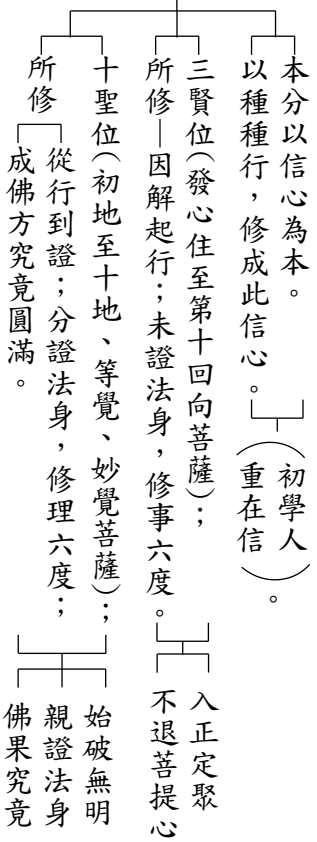 本分以信心為本。
以種種行，修成此信心。
（初學人
重在信）。
三賢位（發心住至第十回向菩薩）；
所修—因解起行；未證法身，修事六度。
入正定聚
不退菩提心
十聖位（初地至十地、等覺、妙覺菩薩）；
所修
從行到證；分證法身，修理六度；
成佛方究竟圓滿。
始破無明
親證法身
佛果究竟